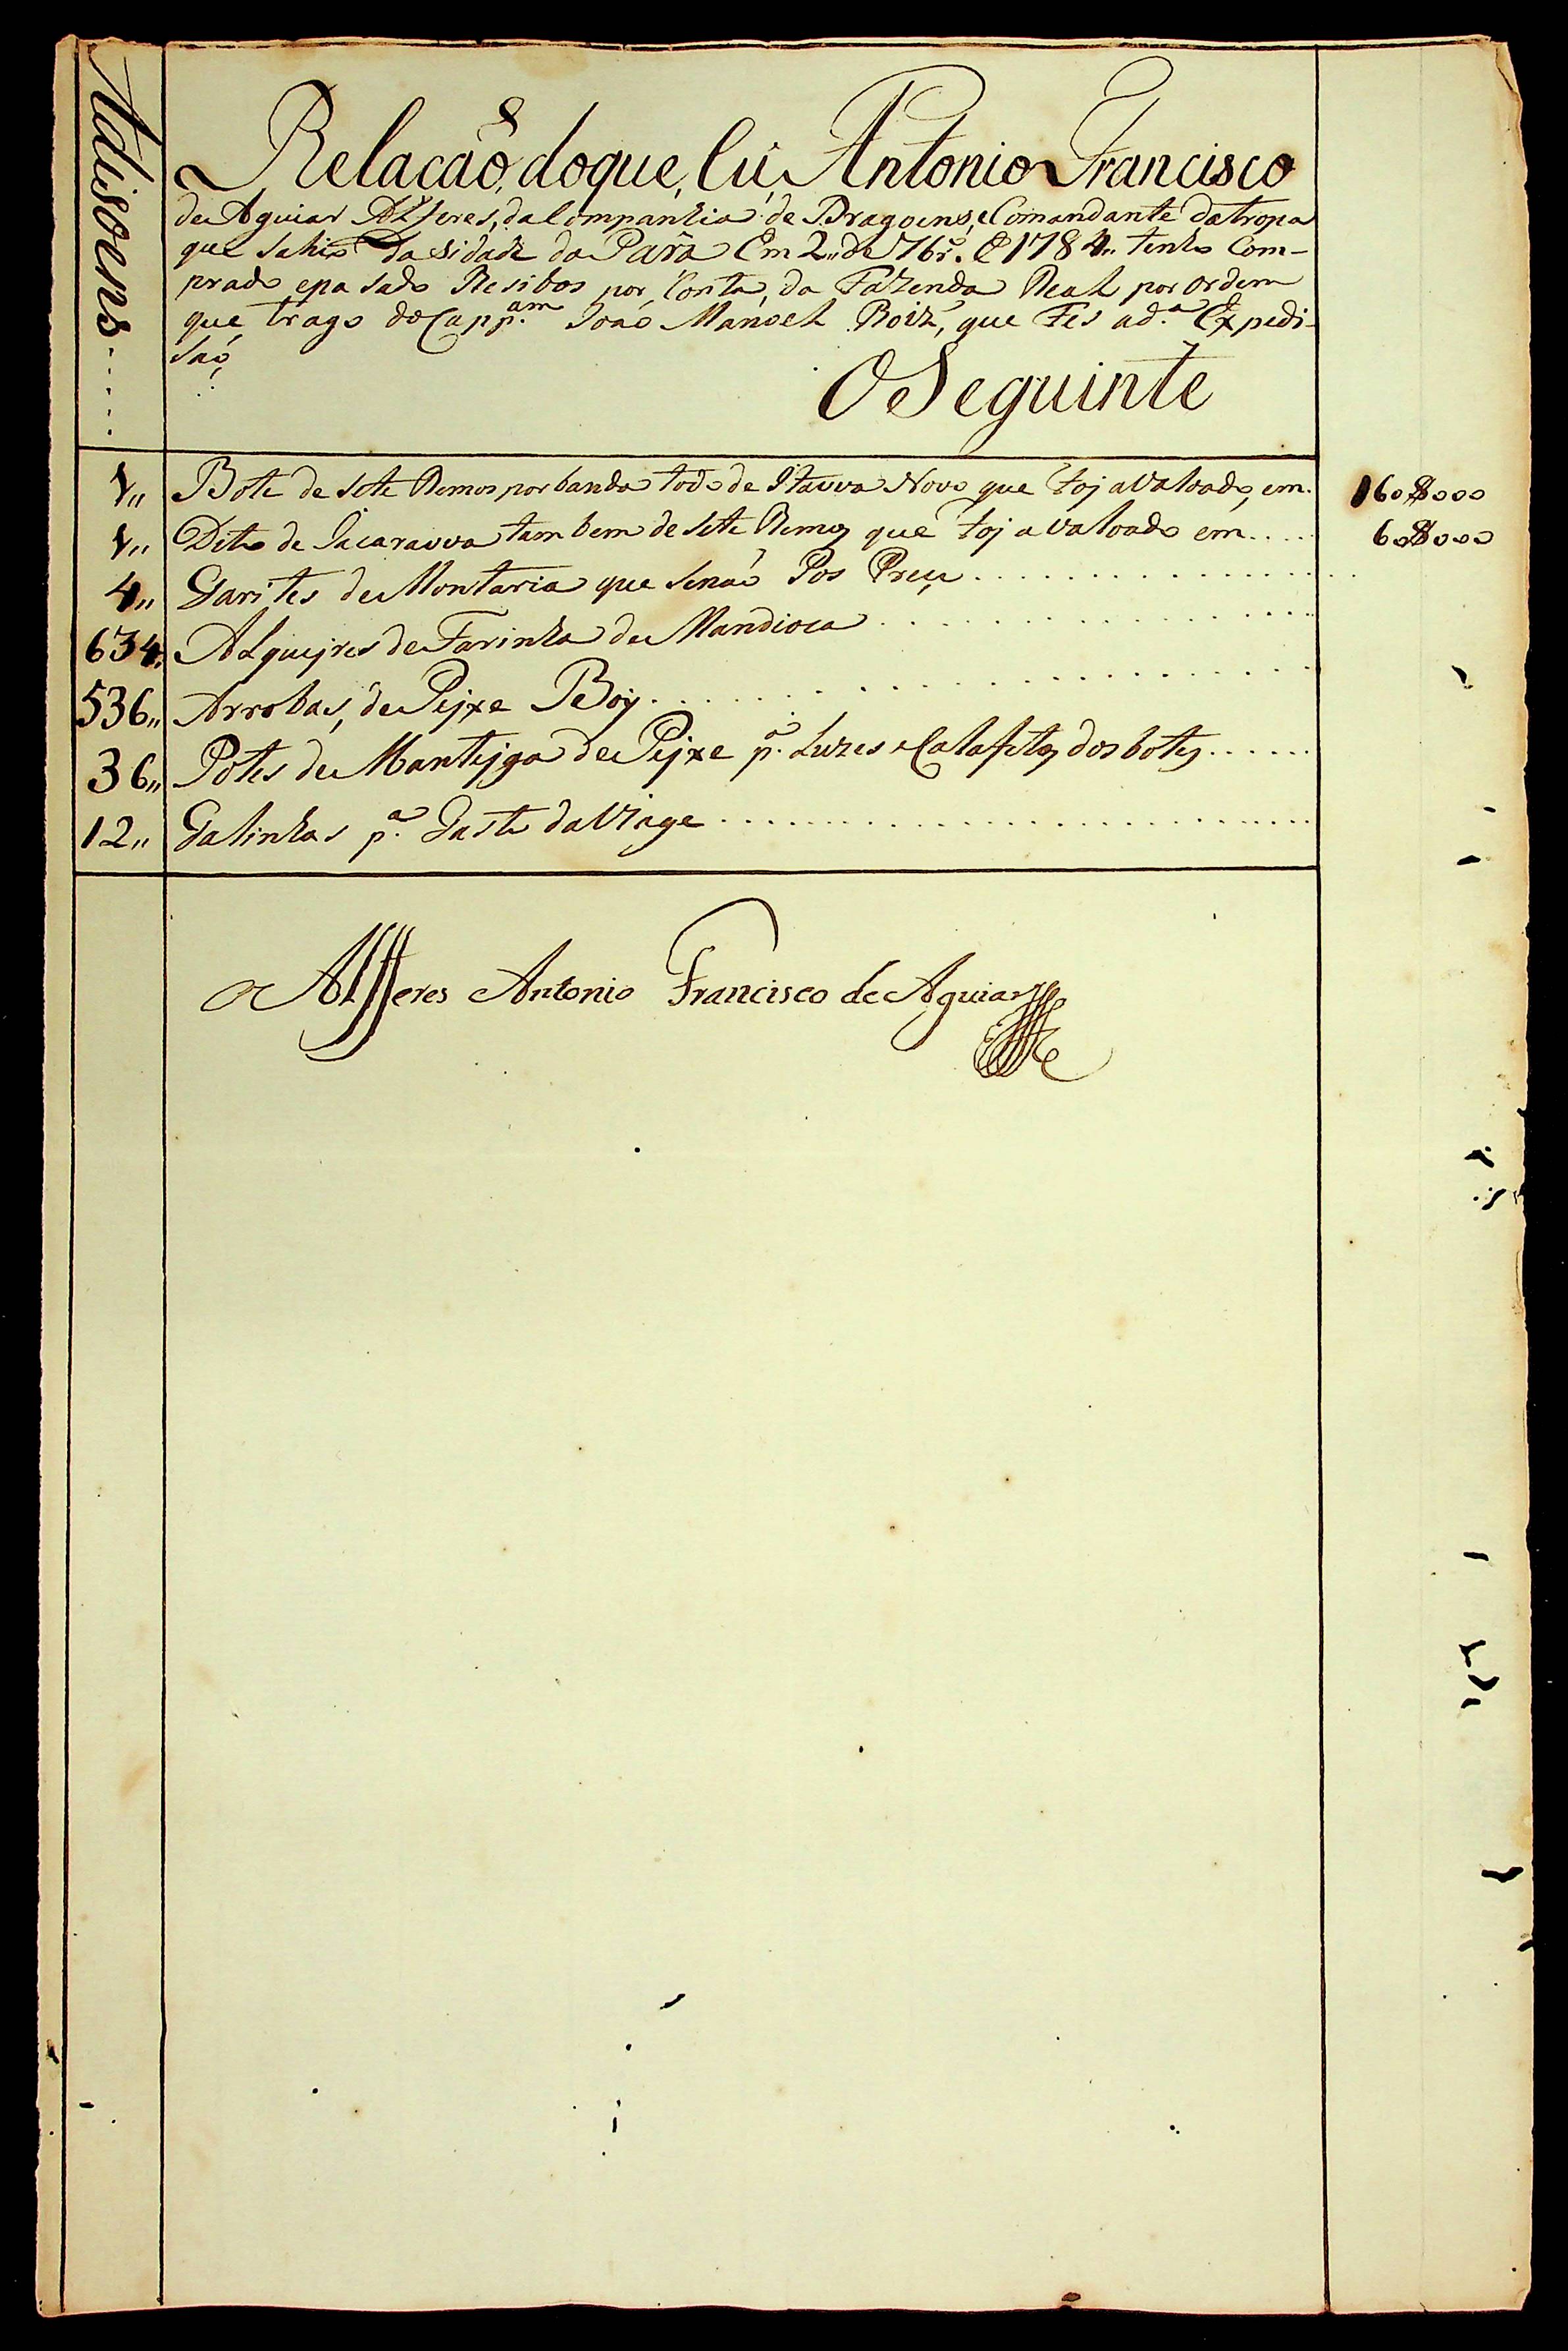 Adisoens.....
Relacaõ, doque, Eu, Antonio Francisco
de Aguiar Alferes, da Companhia de Dragoens, e Comandante da tropa
que Sahio da Sidade do Pará Em 2,, de 7br.º de 1784,, tenho Com-
prado e pasado Resibos por Conta, da Fazenda Real por ordem
que, trago do Capp.am Joaó Manoel Roiz', que Fes a d.ª Expedi-
saó,
O Seguinte
1,, Bote de Sete Remos por banda todo de Itauva Novo que Foj avaloado, em. 160$000
1,, Dito de Iacarauva tambem de Sete Remos que Foj avaloado em.... 60$000
4,, Garites de Montaria que Senaó Pos Preçu................
634,, Alquejres de Farinha de Mandioca................
536,, Arrobas, de Pejxe Boy................
36,, Potes de Mantejga de Pejxe p.ª Luzes e Calafetos dos botes......
12,, Galinhas p.ª Gasto da Viage................
O Alferes Antonio Francisco de Aguiar